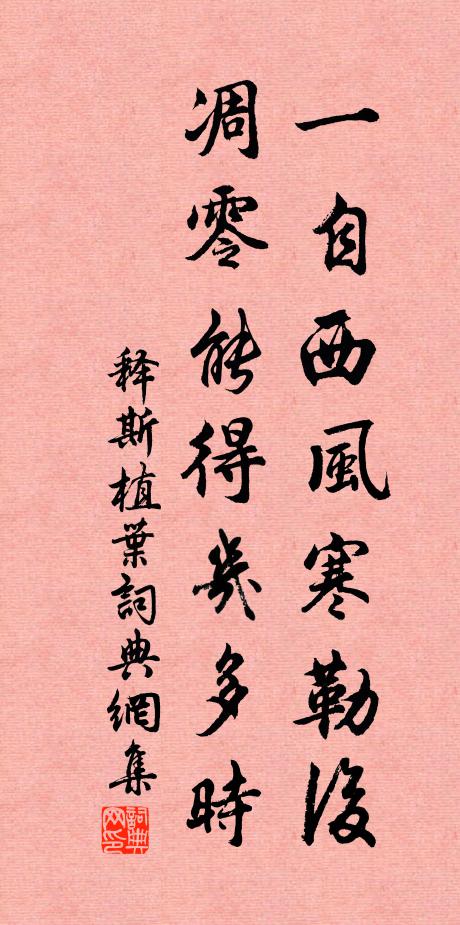 一自西風寒勒後
凋零能得幾多時
释斯植葉詞典網集
詞典网印